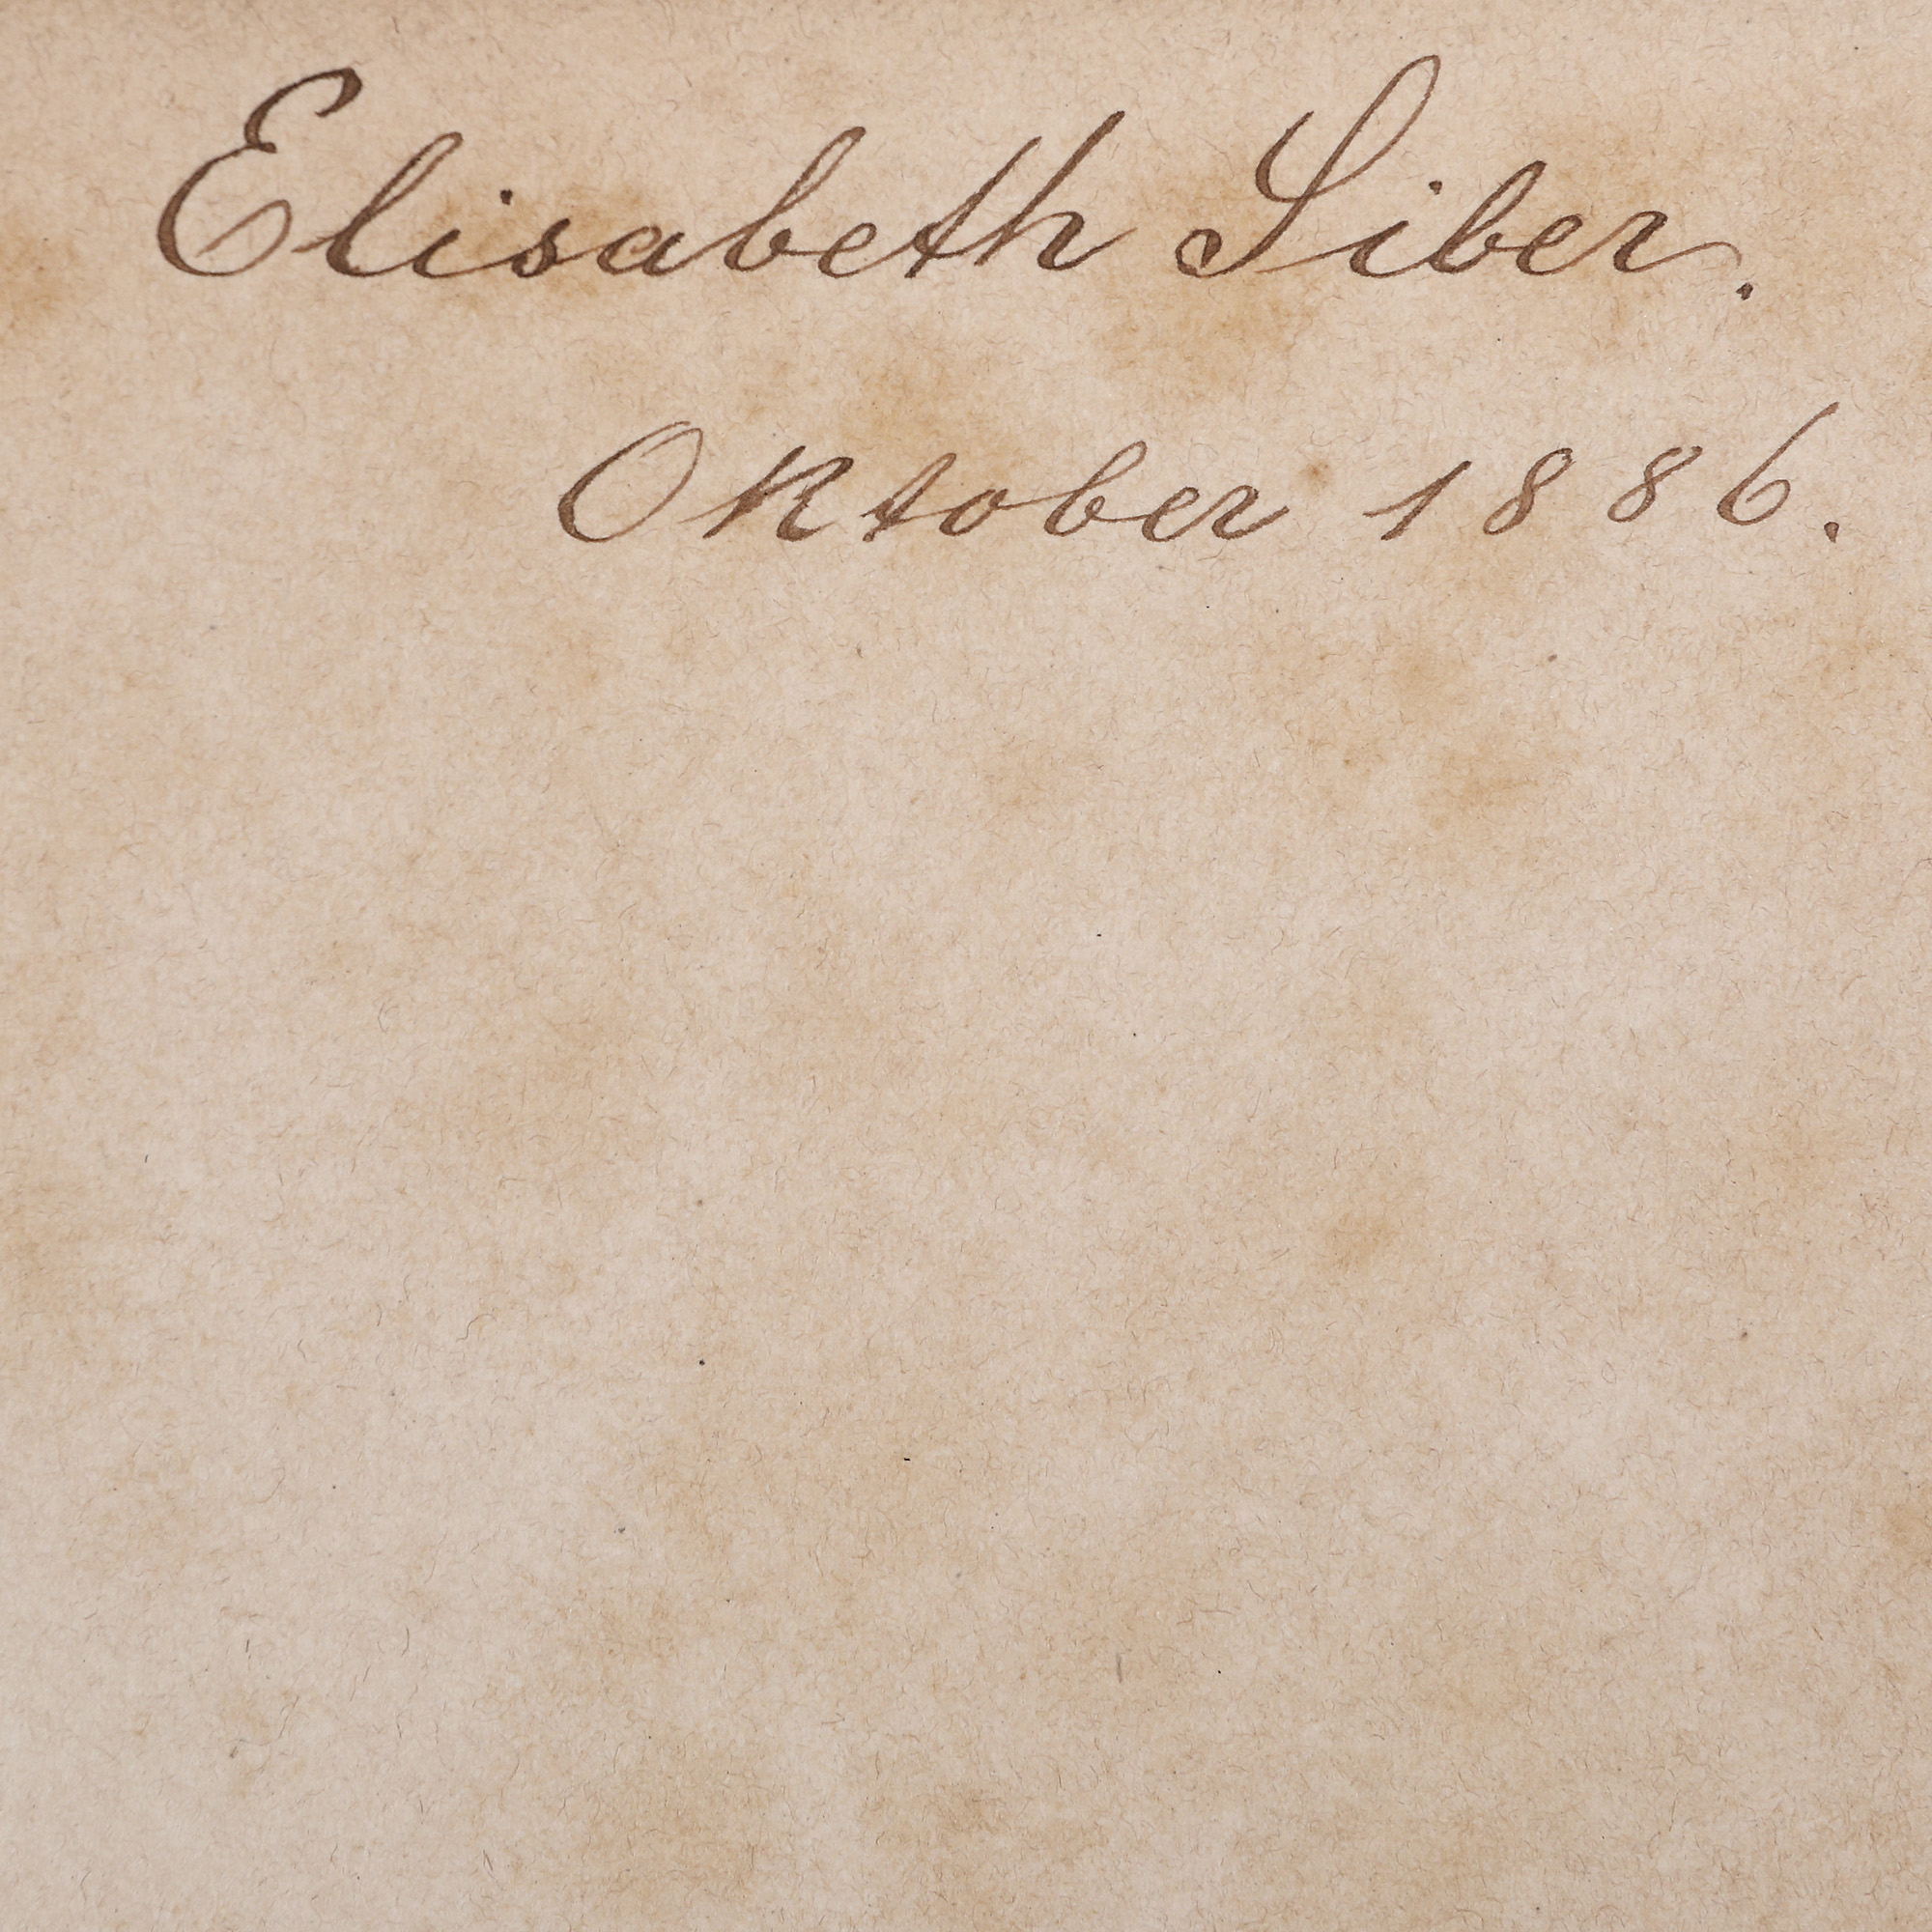 Elisabeth Siber.
Oktober 1886.